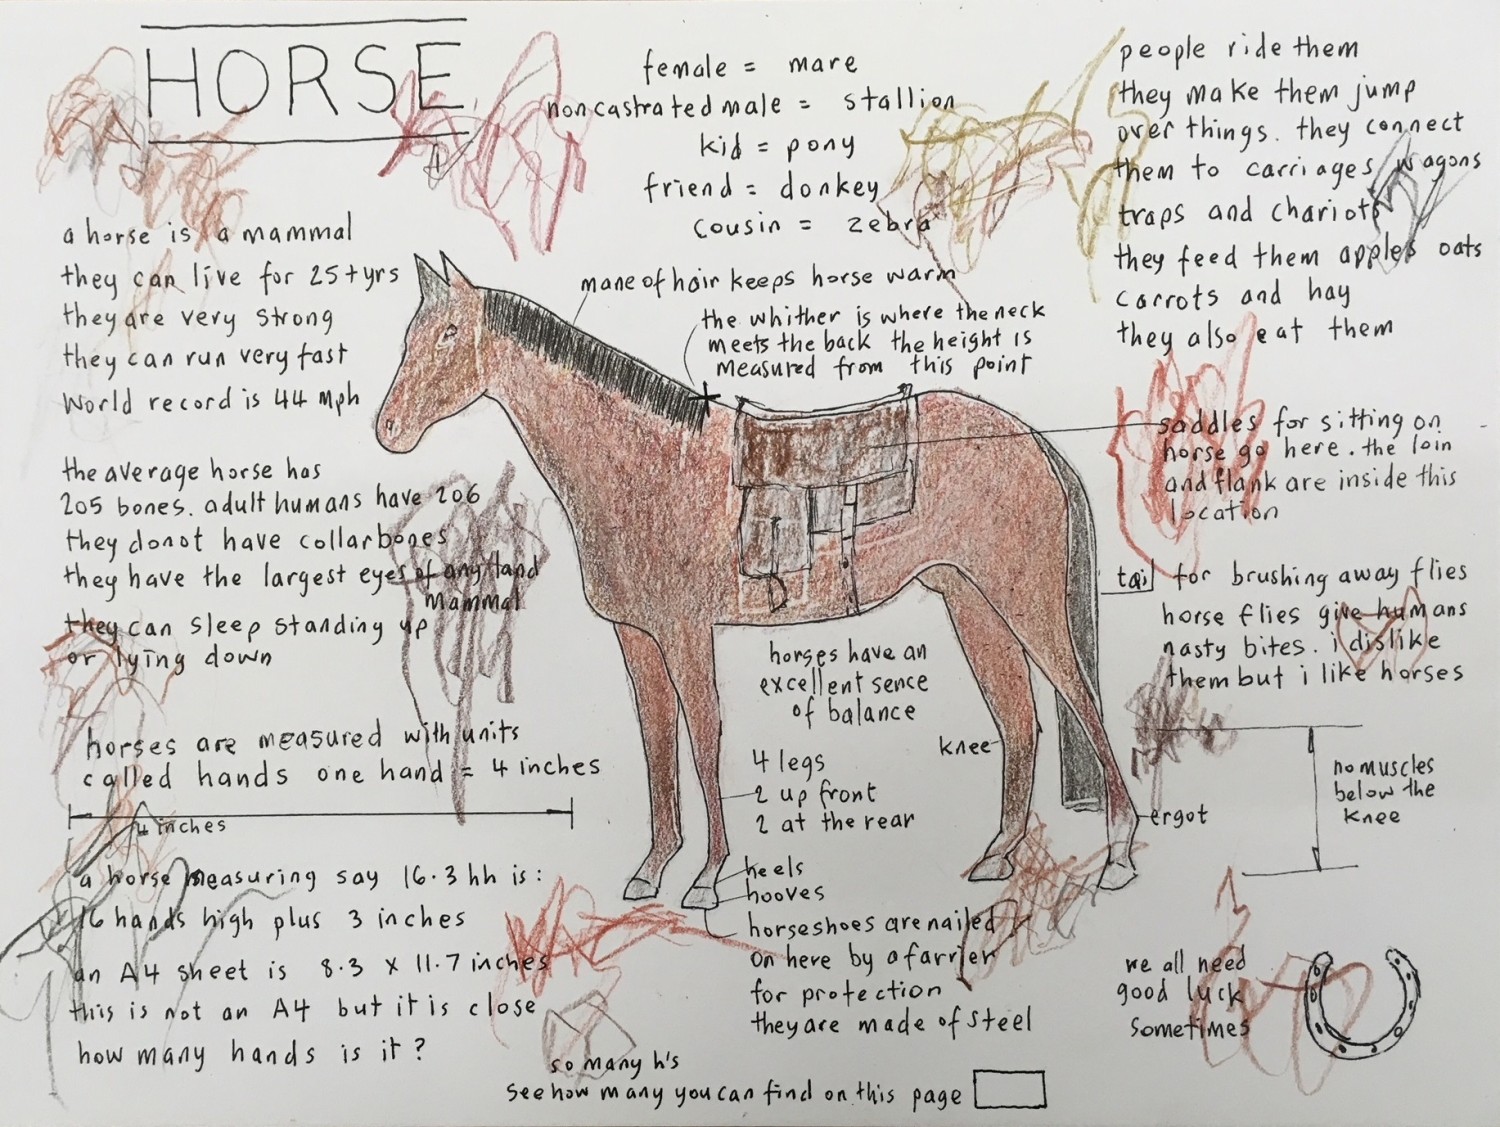 HORSE
a horse is a mammal
they can live for 25+yrs
they are very strong
they can run very fast
World record is 44 mph
the average horse has
205 bones. adult humans have 206
they donot have collarbones
they have the largest eyes of any land
mammal
they can sleep standing up
or lying down
horses are measured with units
called hands one hand = 4 inches
4 inches
a horse measuring say 16.3 hh is:
16 hands high plus 3 inches
an A4 sheet is 8.3 x 11.7 inches
this is not an A4 but it is close
how many hands is it?
female = mare
noncastrated male = stallion
kid = pony
friend = donkey
cousin = zebra
mane of hair keeps horse warm
the whither is where the neck
meets the back the height is
measured from this point
horses have an
excellent sence
of balance
knee
4 legs
2 up front
2 at the rear
heels
hooves
horseshoes are nailed
on here by a farrier
for protection
they are made of steel
so many h's
see how many you can find on this page
people ride them
they make them jump
over things. they connect
them to carriages wagons
traps and chariots
they feed them apples oats
carrots and hay
they also eat them
saddles for sitting on
horse go here. the loin
and flank are inside this
location
tail for brushing away flies
horse flies give humans
nasty bites. i dislike
them but i like horses
no muscles
below the
knee
ergot
we all need
good luck
sometimes